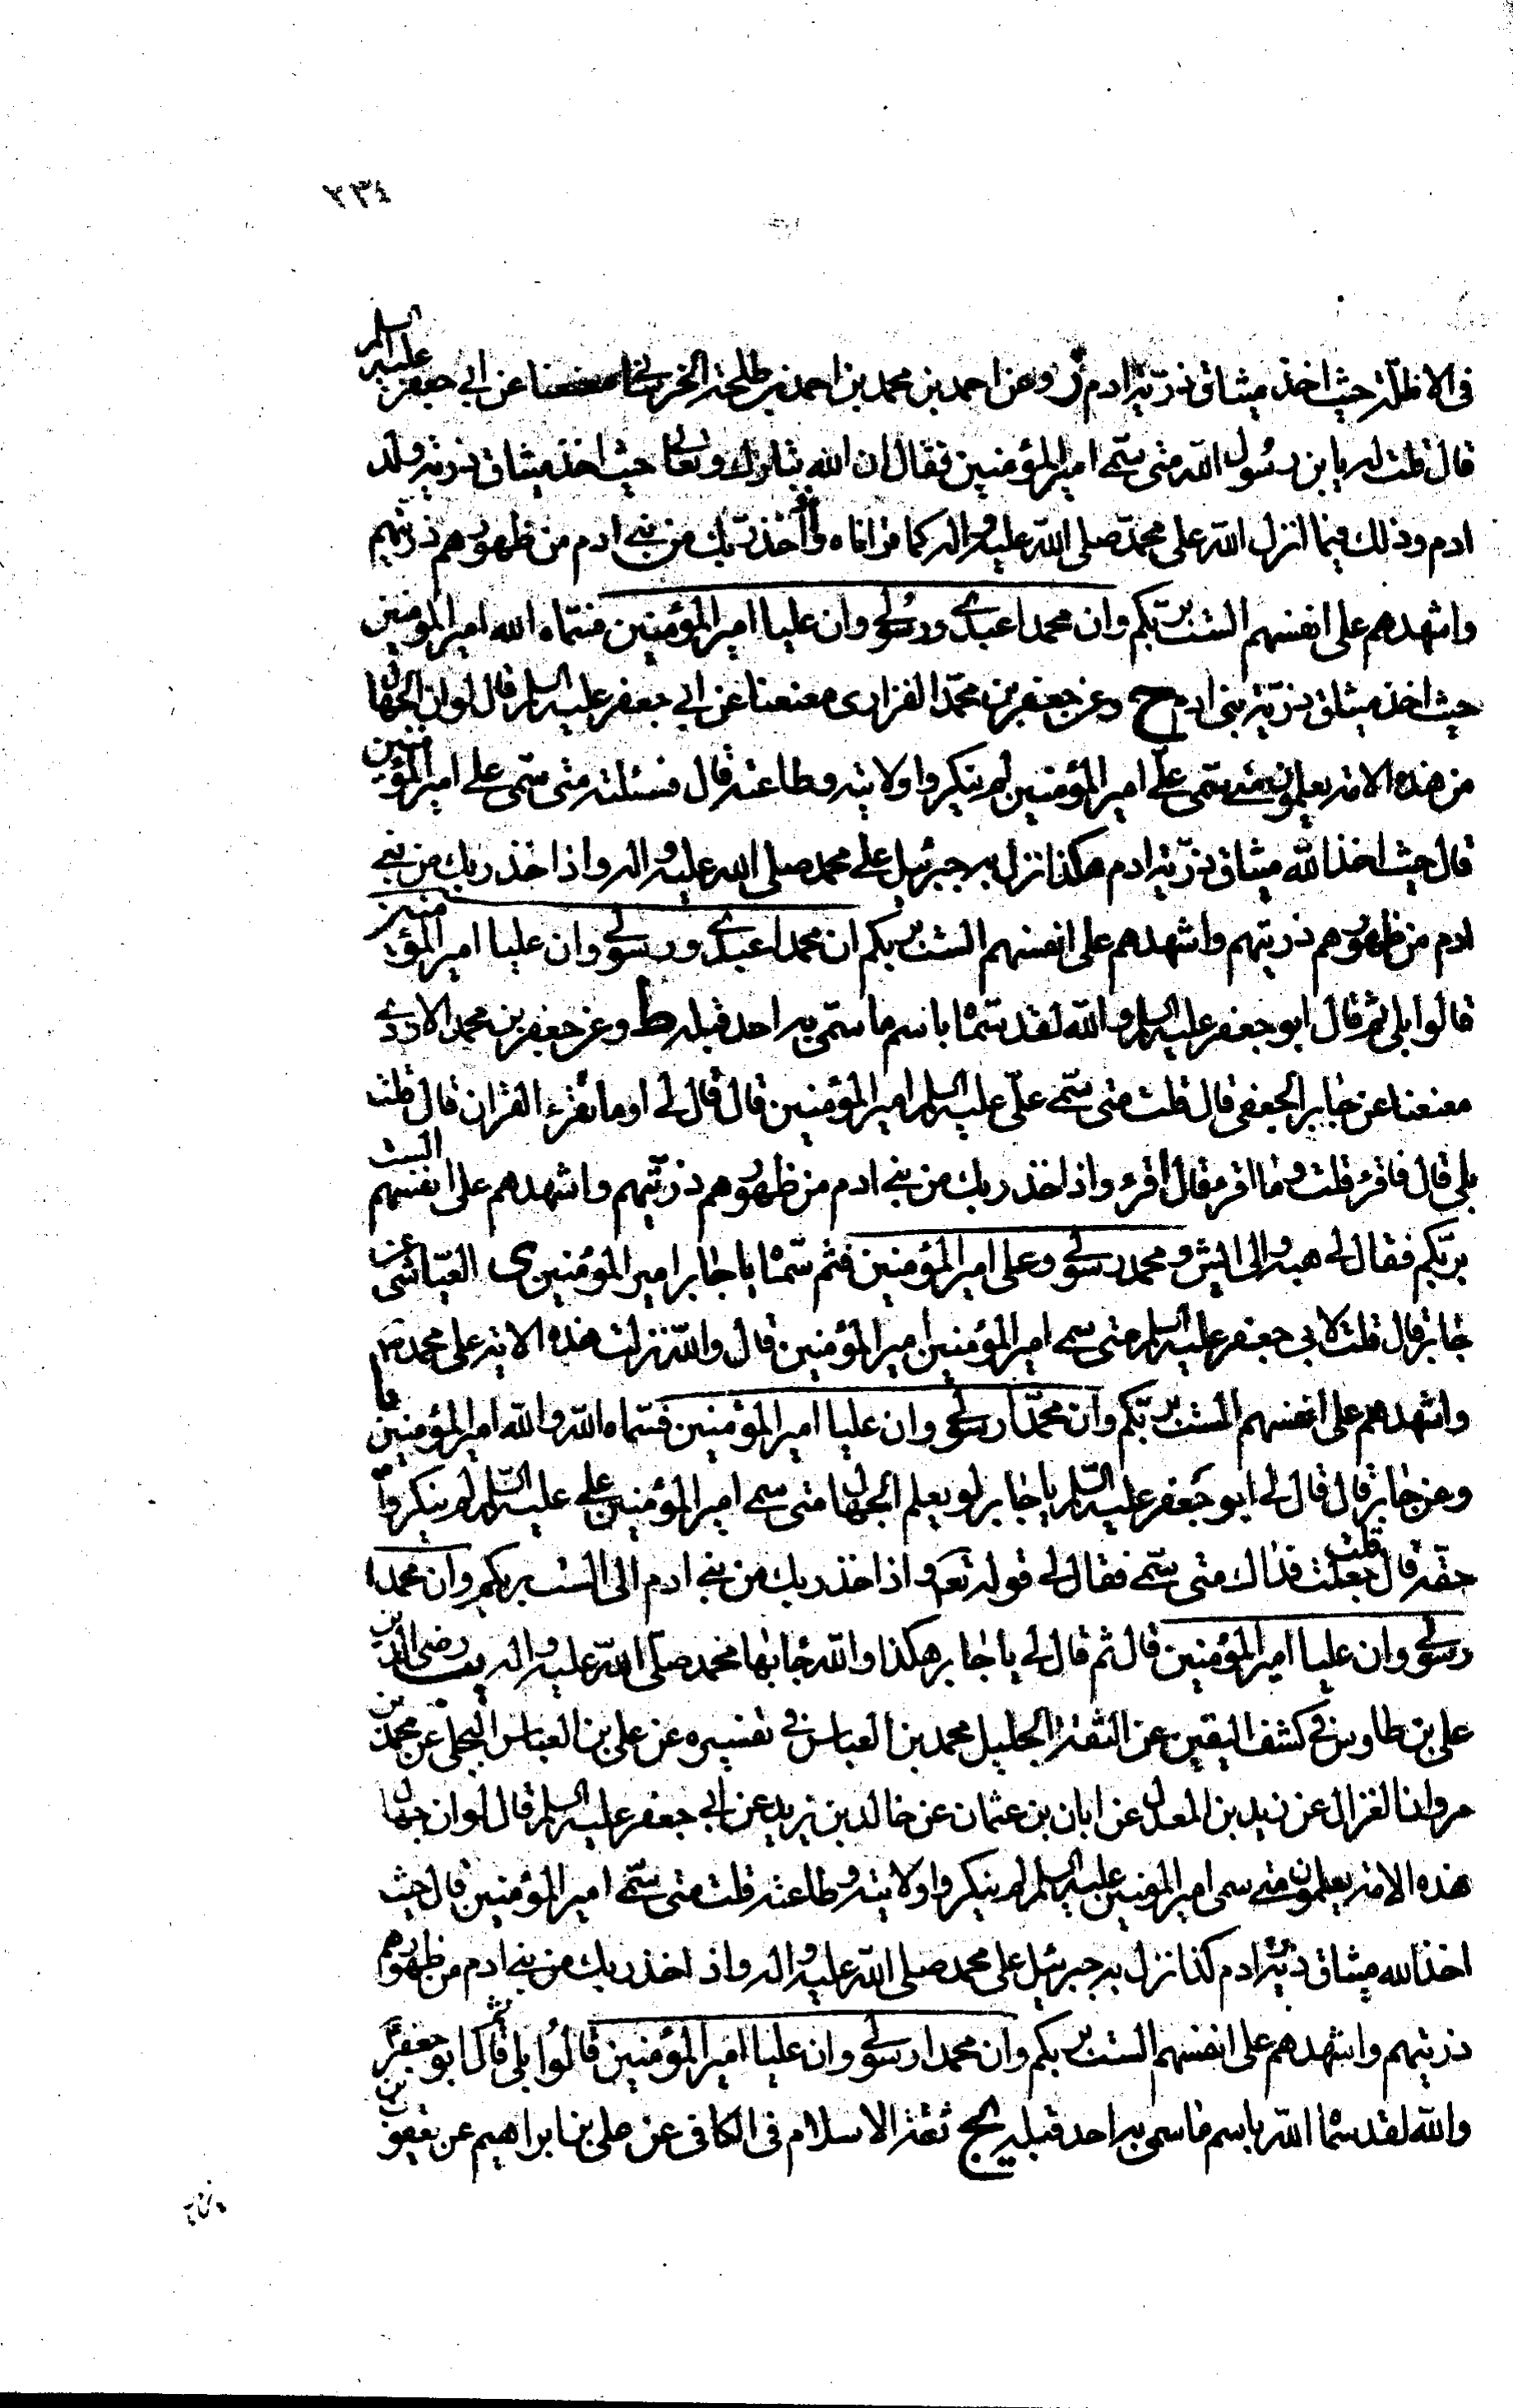 ٢٣٤
فى الاظلّة حيث اخذ ميثاق ذرّية ادم ز وعن احمد بن محمد بن احمد بن طلحة الخراسانى معنعنا عن ابى جعفر عليه السلم
قال قلت له يا بن رسول الله متى سمّى امير المؤمنين فقال ان الله تبارك وتعالى حيث اخذ ميثاق ذرية ولد
ادم وذلك فيما انزل الله على محمّد صلى الله عليه واله كما قراناه واذ اخذ ربّك من بنى ادم من ظهورهم ذريتهم
واشهدهم على انفسهم الست بربّكم وان محمدا عبدى ورسولى وان عليا امير المؤمنين فسمّاه الله امير المؤمنين
حيث اخذ ميثاق ذرّية بنى ادم ح وعن جعفر بن محمّد الفزارى معنعنا عن ابى جعفر عليه السلم قال لو ان الجهال
من هذه الامة يعلمون متى سمّى علىّ امير المؤمنين لم ينكروا ولايته وطاعته قال فسئلته متى سمّى على امير المؤمنين
قال حيث اخذ الله ميثاق ذرّية ادم هكذا نزل به جبرئيل على محمد صلى الله عليه واله واذ اخذ ربك من بنى
ادم من ظهورهم ذريتهم واشهدهم على انفسهم الست بربكم ان محمدا عبدى ورسولى وان عليا امير المؤمنين
قالوا بلى ثم قال ابو جعفر عليه السلم والله لقد سمّاه باسم ما سمّى به احد قبله ط وعن جعفر بن محمد الاودى
معنعنا عن جابر الجعفى قال قلت متى سمّى علىّ عليه السلم امير المؤمنين قال قال لى اوما تقرء القران قال قلت
بلى قال فاقرء قلت وما اقرء قال اقرء واذ اخذ ربك من بنى ادم من ظهورهم ذرّيّتهم واشهدهم على انفسهم الست
بربّكم فقال لى هيه الى ايش ومحمد رسولى وعلى امير المؤمنين فثم سمّاه يا جابر امير المؤمنين ى العيّاشى عن
جابر قال قلت لابى جعفر عليه السلم متى سمى امير المؤمنين امير المؤمنين قال والله نزلت هذه الاية على محمد ص
واشهدهم على انفسهم الست بربّكم وان محمّدا رسولى وان عليا امير المؤمنين فسمّاه الله والله امير المؤمنين يا
وعن جابر قال قال لى ابو جعفر عليه السّلم يا جابر لو يعلم الجهال متى سمى امير المؤمنين على عليه السّلم لم ينكروا
حقّه قال قلت جعلت فداك متى سمّى فقال لى قوله تعه واذ اخذ ربك من بنى ادم الى الست بربكم وان محمدا
رسولى وان عليا امير المؤمنين قال ثم قال لى يا جابر هكذا والله جاء بها محمد صلّى الله عليه واله يب رضى الدين
على بن طاوس فى كشف اليقين عن الثقة الجليل محمد بن العباس فى تفسيره عن على بن العباس البجلى عن محمد بن
مروان الغزال عن زيد بن المعدل عن ابان بن عثمان عن خالد بن يزيد عن ابى جعفر عليه السلم قال لو ان جهال
هذه الامة يعلمون متى سمى امير المؤمنين عليه السلم لم ينكروا ولايته وطاعته قلت متى سمّى امير المؤمنين قال حيث
اخذ الله ميثاق ذرّيّة ادم كذا نزل به جبرئيل على محمد صلى الله عليه واله واذ اخذ ربك من بنى ادم من ظهورهم
ذريتهم واشهدهم على انفسهم الست بربكم وان محمدا رسولى وان عليا امير المؤمنين قالوا بلى ثم قال ابو جعفر ع
والله لقد سماه الله باسم ما سمى به احد قبله يج ثقة الاسلام فى الكافى عن على بن ابراهيم عن يعقوب بن